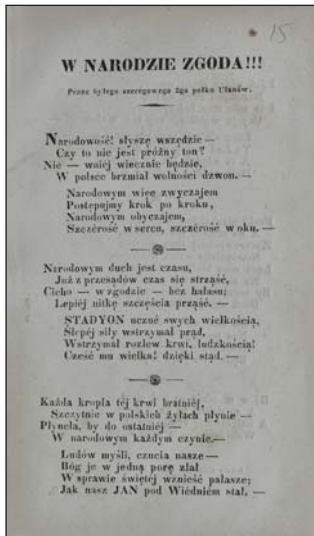 15
W NARODZIE ZGODA!!!
Przez byłego szeregowego 2go pułku Ułanów.
Narodowość! słyszę wszędzie —
Czy to nie jest próżny ton?
Nie — wniéj wiecznie będzie,
W polsce brzmiał wolności dzwon. —
Narodowym więc zwyczajem
Postępujmy krok po kroku,
Narodowym obyczajem,
Szczérość w sercu, szczérość w oku. —
Narodowym duch jest czasu,
Już z przesądów czas się strząść,
Cicho — w zgodzie — bez hałasu;
Lepiéj nitkę szczęścia prząść. —
STADYON uczuć swych wielkością,
Ślepéj siły wstrzymał prąd,
Wstrzymał rozlew krwi, ludzkością!
Cześć mu wielka! dzięki stąd. —
Każda kropla téj krwi bratniéj,
Szczytnie w polskich żyłach płynie —
Płynęła, by do ostatniéj —
W narodowym każdym czynie.—
Ludów myśli, czucia nasze —
Bóg je w jedną porę zlał
W sprawie świętéj wznieść pałasze;
Jak nasz JAN pod Wiédniém stał. —